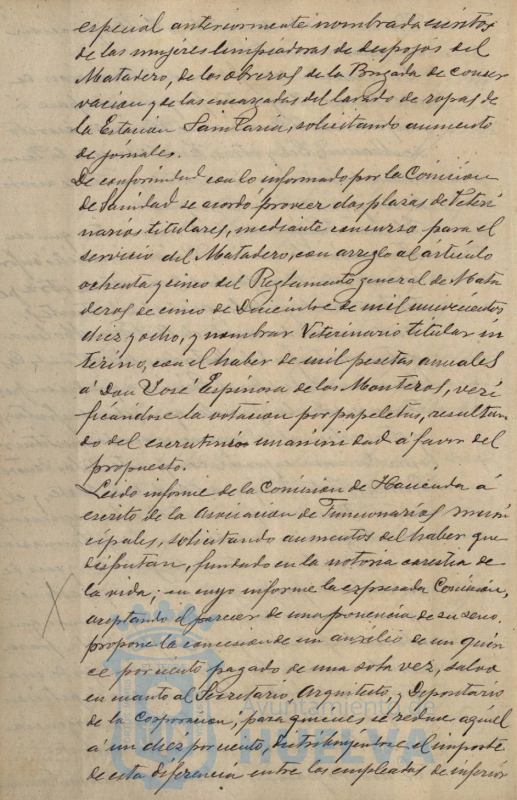 especial anteriormente nombrada escritos
de las mujeres limpiadoras de despojos del
Matadero, de los obreros de la Brigada de conser
vacion y de las encargadas del lavado de ropas de
la Estación Sanitaria, solicitando aumento
de jornales.
De conformidad con lo informado por la Comision
de Sanidad se acordó proveer dos plazas de Veteri
narios titulares, mediante concurso para el
servicio del Matadero, con arreglo al artículo
ochenta y cinco del Reglamento general de Mata
deros de cinco de Diciembre de mil novecientos
diez y ocho, y nombrar Veterinario titular in
terino, con el haber de mil pesetas anuales
á Don José Espinosa de los Monteros, veri
ficándose la votacion por papeletas, resultan
do del escrutinio unanimidad á favor del
propuesto.
Leido informe de la Comision de Hacienda á
escrito de la Asociacion de Funcionarios muni
cipales, solicitando aumentos del haber que
disfrutan, fundado en la notoria carestia de
la vida; en cuyo informe la expresada Comision,
aceptando el parecer de una ponencia de su seno,
propone la concesion de un auxilio de un quin
ce por ciento pagado de una sola vez, salvo
en cuanto al Secretario, Arquitecto y Depositario
de la Corporacion, para quienes se reduce aquél
á un diez por ciento, distribuyendose el importe
de esta diferencia entre los empleados de inferior
Ayuntamiento de
HUELVA